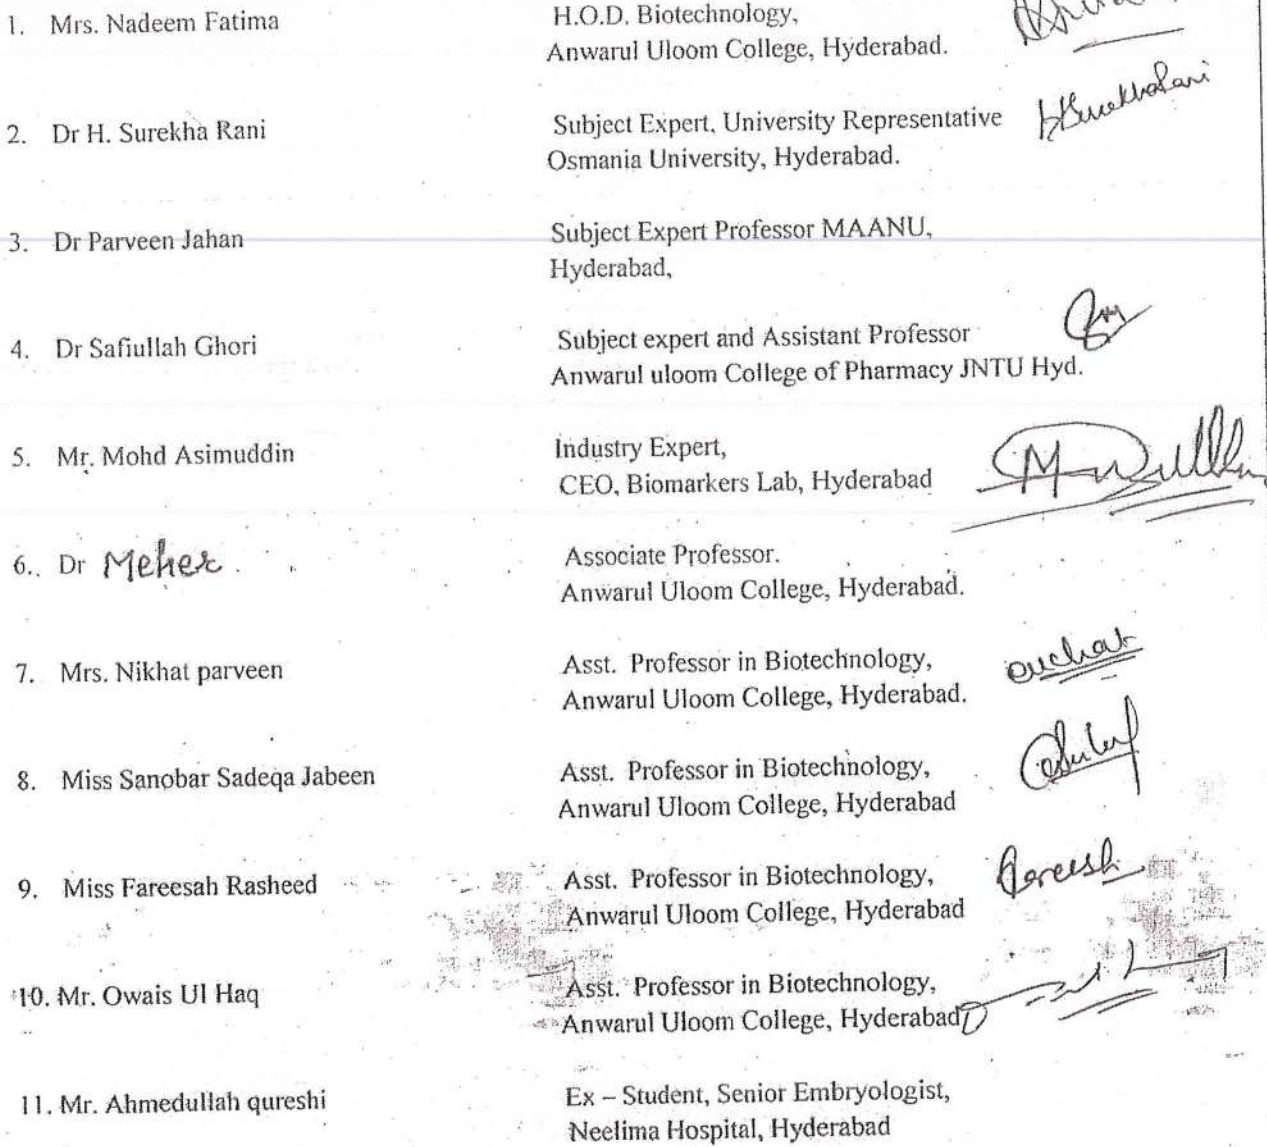 1. Mrs. Nadeem Fatima H.O.D. Biotechnology,
Anwarul Uloom College, Hyderabad.
2. Dr H. Surekha Rani Subject Expert, University Representative HSurekhaRani
Osmania University, Hyderabad.
3. Dr Parveen Jahan Subject Expert Professor MAANU,
Hyderabad,
4. Dr Safiullah Ghori Subject expert and Assistant Professor
Anwarul uloom College of Pharmacy JNTU Hyd.
5. Mr. Mohd Asimuddin Industry Expert,
CEO, Biomarkers Lab, Hyderabad
6.. Dr Meher. Associate Professor.
Anwarul Uloom College, Hyderabad.
7. Mrs. Nikhat parveen Asst. Professor in Biotechnology,
Anwarul Uloom College, Hyderabad.
8. Miss Sanobar Sadeqa Jabeen Asst. Professor in Biotechnology,
Anwarul Uloom College, Hyderabad
9. Miss Fareesah Rasheed Asst. Professor in Biotechnology, Fareesh
Anwarul Uloom College, Hyderabad
10. Mr. Owais Ul Haq Asst. Professor in Biotechnology,
Anwarul Uloom College, Hyderabad
11. Mr. Ahmedullah qureshi Ex – Student, Senior Embryologist,
Neelima Hospital, Hyderabad